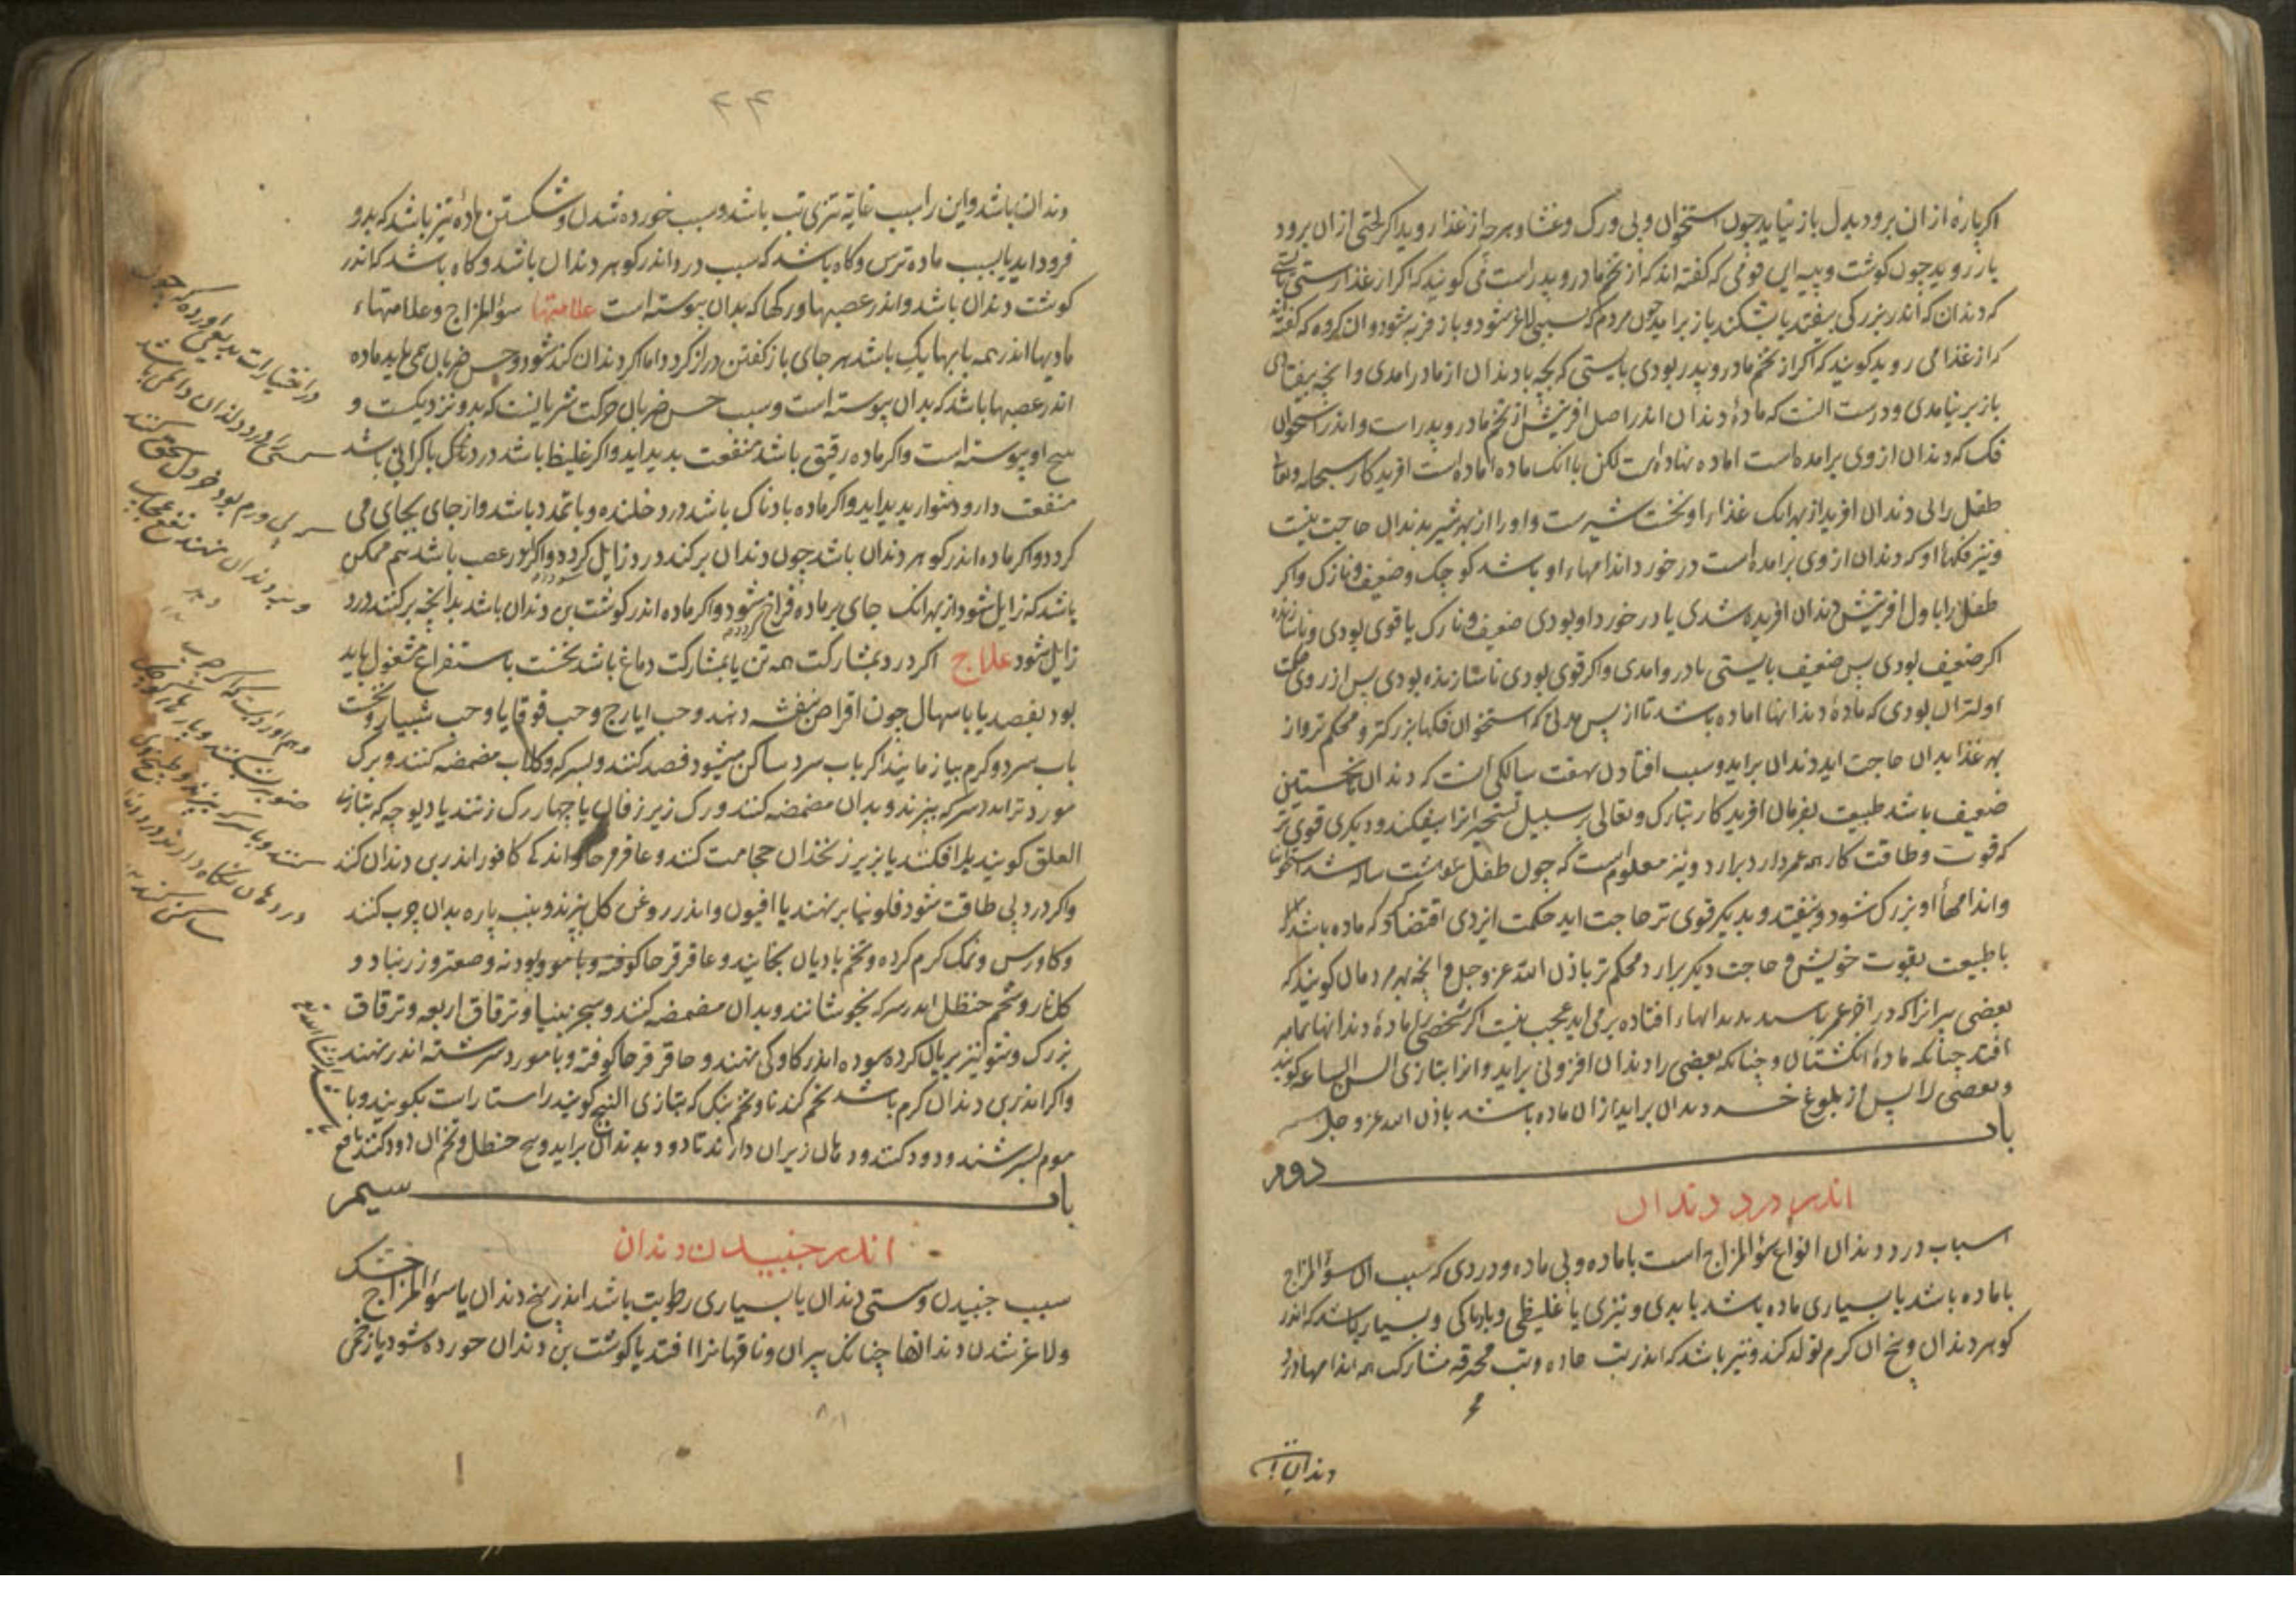 اکر پارهٔ ازان برود بدل باز نیاید چون استخوان و پی و رک و غشا و هرچه از غذا روید اکر لختی ازان برود
باز روید چون کوشت و پیه این قومی که کفته اند که از تخم مادر روید راست می کویند که اکر از غذا رستی
که دندان که اندر بزرکی بیفتد یا بشکند باز برامدی چون مردم که بسببی لاغر شود و باز فربه شود و ان کروه که کفته اند
که از غذا می روید کویند که اکر از تخم مادر و پدر بودی بایستی که بچه با دندان از مادر امدی و انچه بیفتادی
باز برنیامدی و درست انست که مادهٔ دندان اندر اصل افرینش از تخم مادر و پدر است و اندر استخوان
فک که دندان ازوی برامده است اماده نهاده است لکن با انک ماده اماده است افریدکار سبحانه و تعالی
طفل را بی دندان افرید از بهر انک غذاء او نخست شیرست و او را از بهر شیر بدندان حاجت نیست
و نیز فکهاء او که دندان ازوی برامده است در خورد اندامهاء او باشد کوچک و ضعیف و نازک و اکر
طفل را باول افرینش دندان افریده شدی یا در خورد او بودی ضعیف و نازک یا قوی بودی و ناسازنده
اکر ضعیف بودی پس ضعیف بایستی مادر و امدی و اکر قوی بودی ناسازنده بودی پس از روی حکمت
اولتر ان بودی که مادهٔ دندانها اماده باشد تا از پس مدتی که استخوان فکها بزرکتر و محکم تر و از
بهر غذا بدان حاجت اید دندان براید و سبب افتادن بهفت سالکی انست که دندان نخستین
ضعیف باشد طبیعت بفرمان افریدکار تبارک و تعالی بر سبیل انرا بیفکند و دیکری قوی تر
که قوت و طاقت کار همه عمر دارد برارد و نیز معلوم است که چون طفل هشت ساله شد استخوانها
و اندامهاء او بزرک شود و بیفتد و بدیکر قوی تر حاجت اید حکمت ایزدی اقتضا کرد که ماده باشد که
با طبیعت بقوت خویش و حاجت دیکر برارد محکم تر باذن الله عز و جل و انچه مردمان کویند که
بعضی پیرانرا که در اخر عمر بدل دندانهاء افتاده برمی اید عجب نیست اکر شخصی را مادهٔ دندانها
افتد چنانکه مادهٔ انکشتان و چنانکه بعضی را دندان افزونی براید و انرا بتازی السن الشاغیه کویند
و بعضی را پس از بلوغ خرد دندان براید ازان ماده باشد باذن الله عز و جل
باب دوم
اندر درد دندان
اسباب درد دندان انواع سوءالمزاج است با ماده و بی ماده و دردی که سبب ان سوءالمزاج
با ماده باشد یا بسیاری ماده باشد یا بدی و تیزی یا غلیظی و بادناکی و بسیار باشد که اندر
کوهر دندان و بیخ ان کرم تولد کند و نیز باشد که اندر تب حاده و تب محرقه بمشارکت همه اندامها درد
دندان باشد
۴۴
دندان باشد و این را سبب غایة تیزی تب باشد و سبب خورده شدن و شکستن ماده تیز باشد که بدو
فرود اید یا سبب ماده ترش و کاه باشد که سبب درد اندر کوهر دندان باشد و کاه باشد که اندر
کوشت دندان باشد و اندر عصبها و رکها که بدان پیوسته است علامتها سوءالمزاج و علامتهاء
مادیها اندر همه بابها یک باشد هر جای باز کفتن دراز کردد اما اکر دندان کند شود و حس ضربان همی یابد ماده
اندر عصبها باشد که بدان پیوسته است و سبب حس ضربان حرکت شریانست که بدو نزدیکست و
بیخ او پیوسته است و اکر ماده رقیق باشد منفعت بدید اید و اکر غلیظ باشد درد با کرانی باشد
منفعت دارو دشوار بدید اید و اکر ماده بادناک باشد درد خلنده و با تمدد باشد و از جای بجای می
کردد و اکر ماده اندر کوهر دندان باشد چون دندان برکنند درد زایل کردد و اکر در عصب باشد هم ممکن
باشد که زایل شود از بهر انک جای بر ماده فراخ شود و اکر ماده اندر کوشت بن دندان باشد بدانچه برکنند درد
زایل شود علاج اکر درد بمشارکت همه تن یا بمشارکت دماغ باشد نخست باستفراغ مشغول باید
بود بفصد یا باسهال چون اقراص بنفشه دهند و حب ایارج و حب قوقایا و حب شبیار و نخست
باب سرد و کرم بیازمایند اکر باب سرد ساکن میشود فصد کنند و بسرکه و کلاب مضمضه کنند و برک
مورد تر اندر سرکه بپزند و بدان مضمضه کنند و رک زیر زفان یا چهار رک زنند یا دیوچه که بتازی
العلق کویند برافکنند یا بزیر زنخدان حجامت کنند و عاقرقرحا و اندکی کافور اندر بن دندان کنند
و اکر درد بی طاقت شود فلونیا برنهند یا افیون و اندر روغن کل بپزند و پنبه پاره بدان چرب کنند
و کاورس و نمک کرم کرده و تخم بادیان بخایند و عاقرقرحا کوفته و با مو و پودنه و صعتر و زرنباد و
کلنار و شحم حنظل اندر سرکه بجوشانند و بدان مضمضه کنند و سجزینیا و تریاق اربعه و تریاق
بزرک و شونیز بریان کرده سوده اندر کاوکی نهند و عاقرقرحا کوفته و با مورد سرشته اندر نهند
و اکر اندر بن دندان کرم باشد تخم کندنا و تخم بنک که بتازی البنج کویند راستا راست بکویند و با
موم بسرشند و دود کنند و دهان زیر ان دارند تا دود بدندان براید و بیخ حنظل و تخم ان دود کنند نافع
باب سیم
اندر جنبیدن دندان
سبب جنبیدن و سستی دندان یا بسیاری رطوبت باشد اندر بیخ دندان یا سوءالمزاج خشک
و لاغر شدن دندانها چنانک پیران و ناقهانرا افتد یا کوشت بن دندان خورده شود یا زخمی
در اختیارات بدیعی اورده که چون